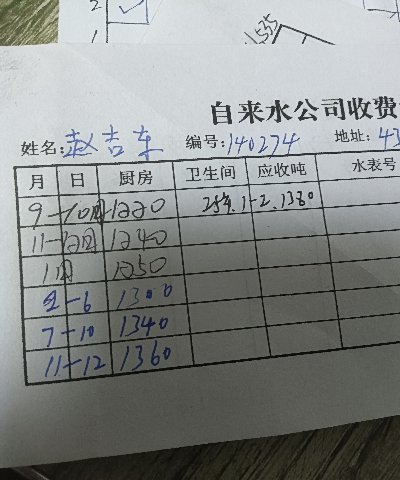 2
1
1535
自来水公司收费
姓名: 赵吉车 编号: 140274 地址: 43
月 日 厨房 卫生间 应收吨 水表号
9-10月 1220 25年.1-2. 1380
11-12月 1240
1月 1250
2-6 1300
7-10 1340
11-12 1360